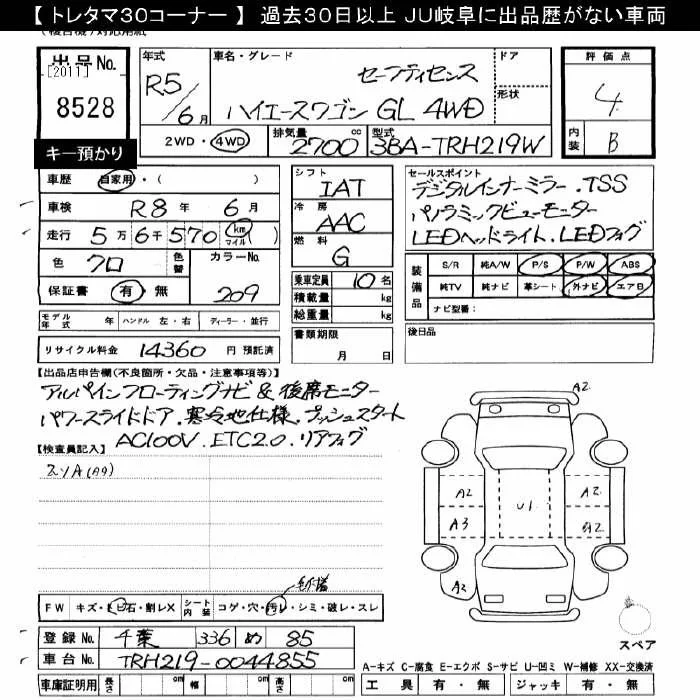 【 トレタマ30コーナー 】 過去30日以上 JU岐阜に出品歴がない車両
出品No.
【2011】
8528
キー預かり
年式
R5/6月
車名・グレード
セーフティセンス
ハイエースワゴン GL 4WD
ドア
形状
評価点
4
内装
B
2WD・4WD
排気量
2700cc
型式
3BA-TRH219W
車歴 自家用・( )
車検 R8年 6月
走行 5万6千570 (km マイル)
色 クロ 色替 カラーNo.
保証書 有・無 209
シフト
IAT
冷房
AAC
燃料
G
乗車定員 10名
積載量 kg
総重量 kg
セールスポイント
デジタルインナーミラー.TSS
パノラミックビューモニター
LEDヘッドライト.LEDフォグ
装備品
S/R 純A/W P/S P/W ABS
純TV 純ナビ 革シート 外ナビ エアB
ナビ型番:
モデル年式 年 ハンドル 左・右 ディーラー・並行
書類期限
月 日
後日品
リサイクル料金 14360 円 預託済
【出品店申告欄(不良箇所・欠品・注意事項等)】
アルパインフローティングナビ & 後席モニター
パワースライドドア.寒冷地仕様.プッシュスタート
AC100V.ETC2.0.リアフォグ
【検査員記入】
A2
A2
U1
A2
A3
A2
スペア
FW キズ・トビ石・割レX シート内装 コゲ・穴・汚レ・シミ・破レ・スレ
登録No. 千葉 336 め 85
車台No. TRH219-0044855
A-キズ C-腐食 E-エクボ S-サビ U-凹ミ W-補修 XX-交換済
車庫証明用 長さ cm 幅 cm 高さ cm
工具 有・無 ジャッキ 有・無